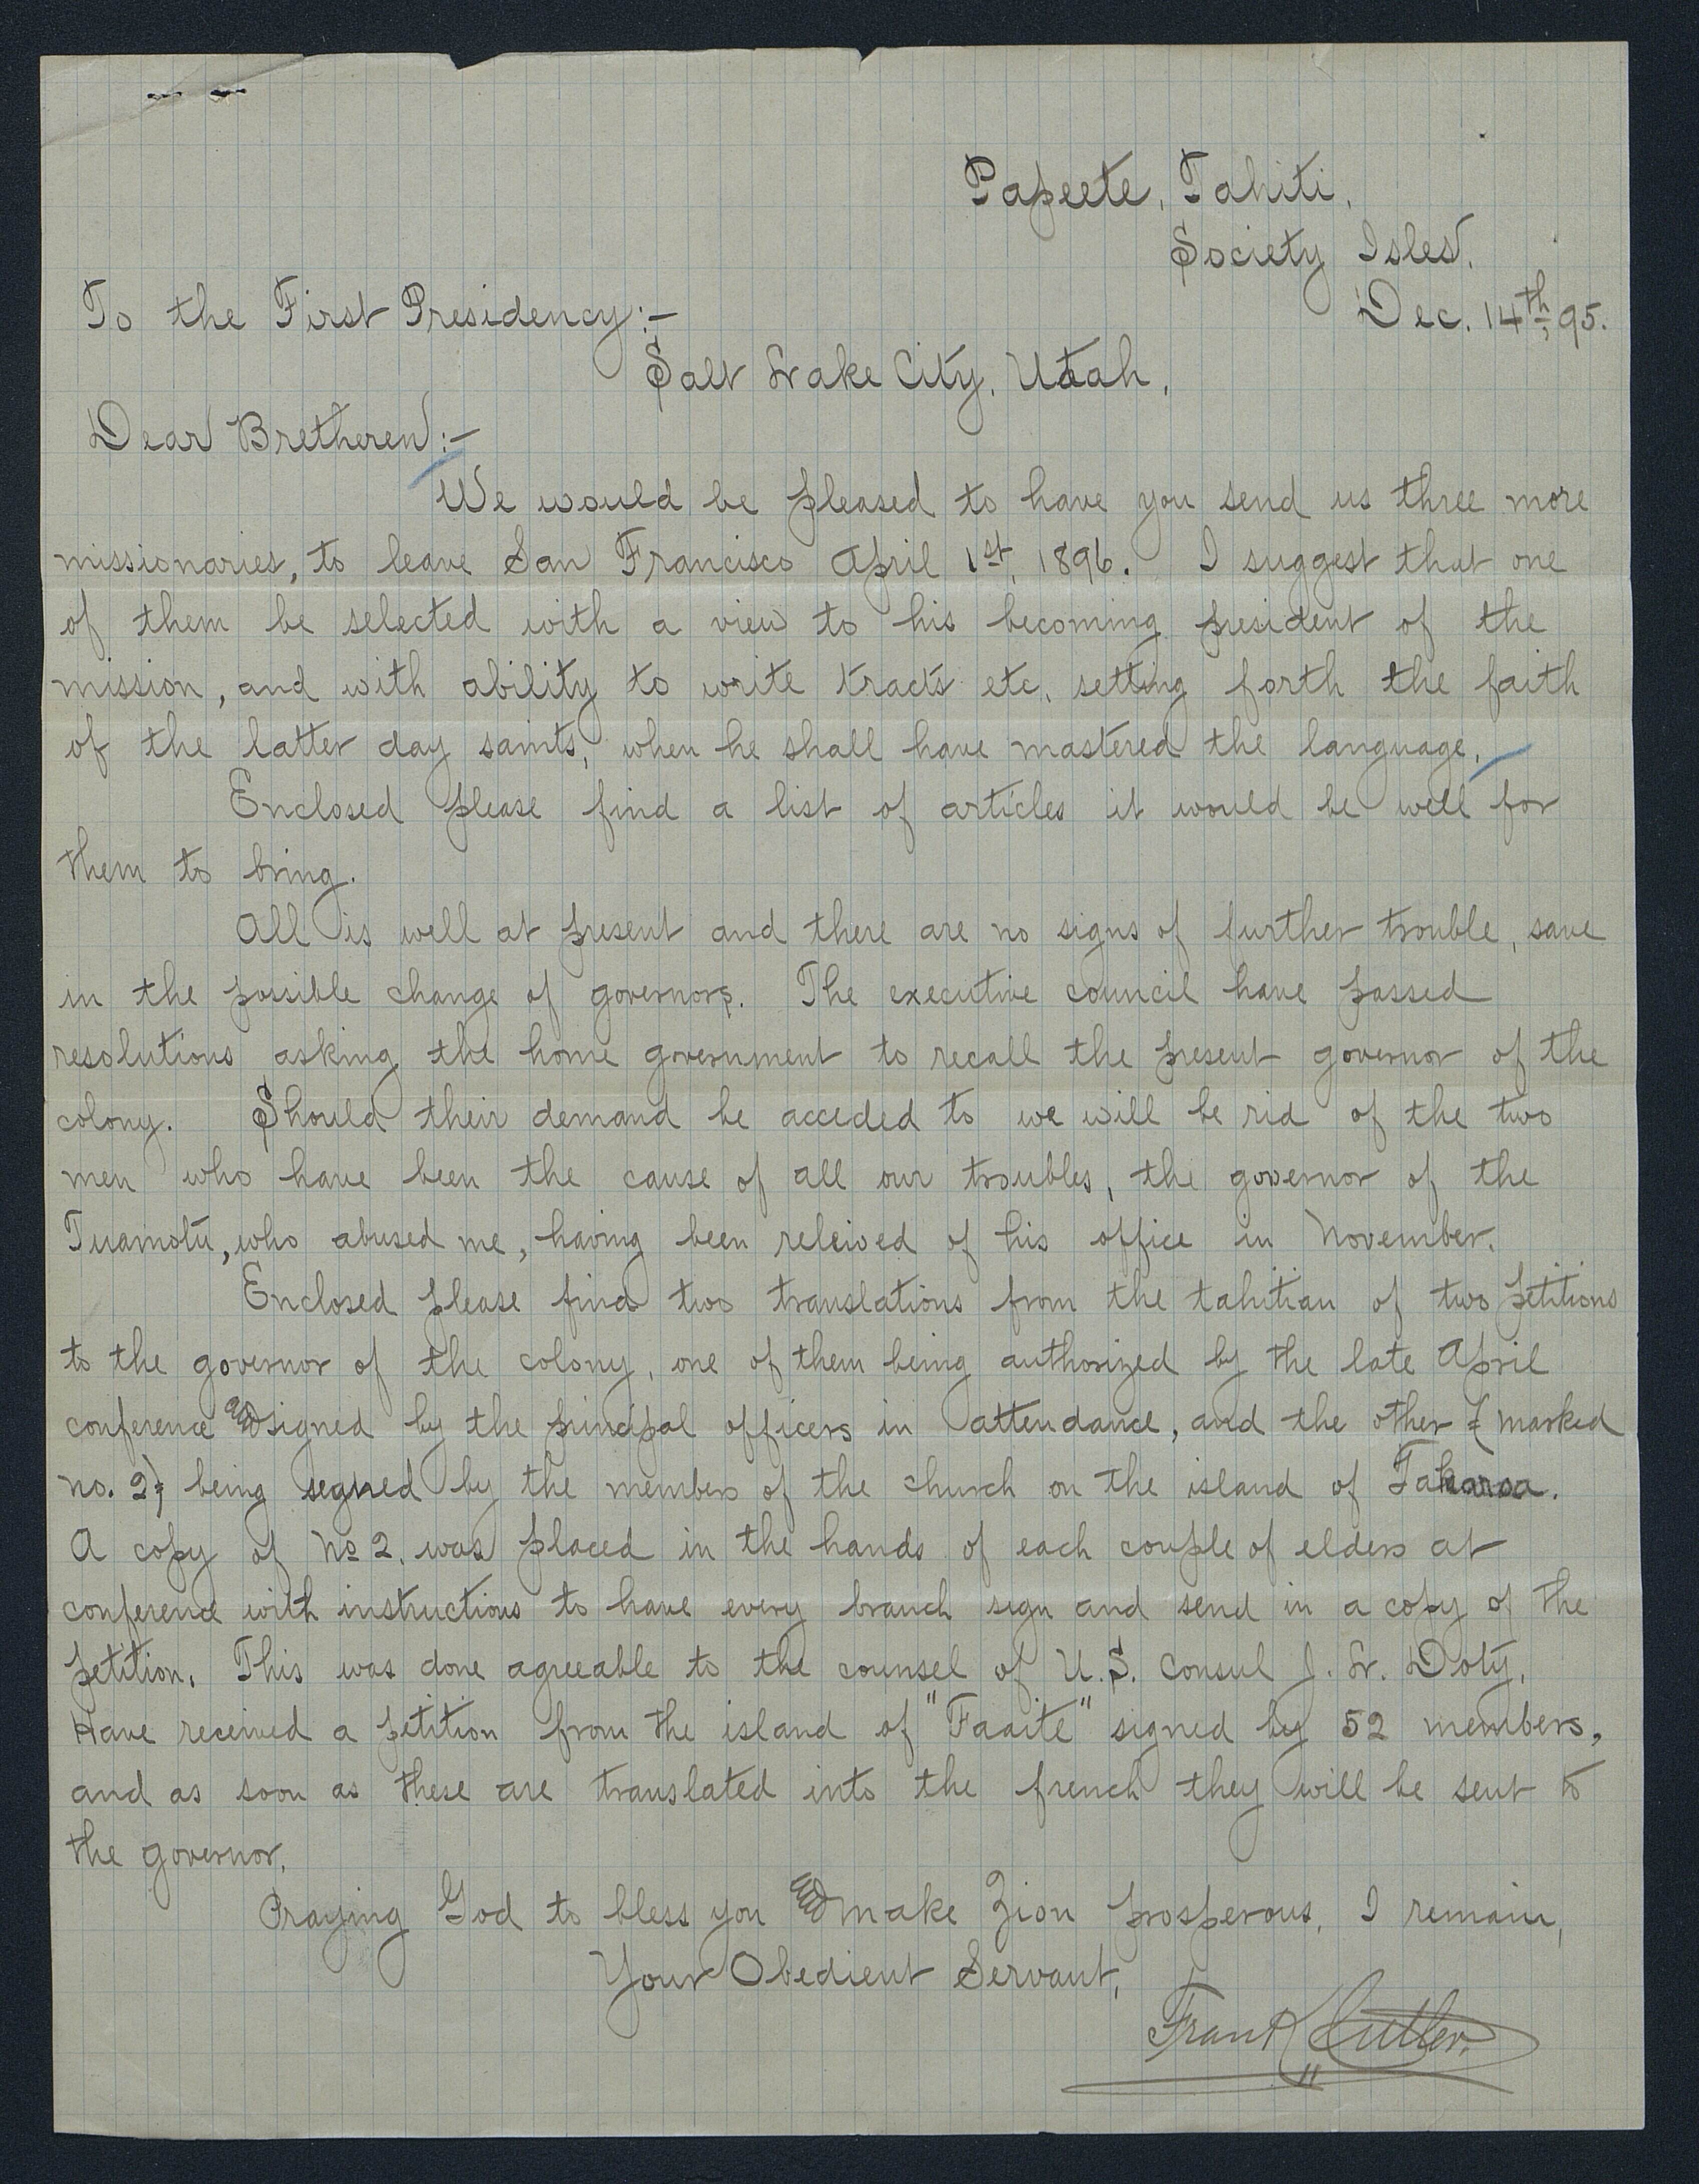 Papeete, Tahiti,
Society Isles.
Dec. 14th, 95.
To the First Presidency:-
Salt Lake City, Utah,
Dear Bretheren:-
We would be pleased to have you send us three more
missionaries, to leave San Francisco April 1st, 1896. I suggest that one
of them be selected with a view to his becoming president of the
mission, and with ability to write tracts etc, setting forth the faith
of the latter day saints, when he shall have mastered the language.
Enclosed please find a list of articles it would be well for
them to bring.
All is well at present and there are no signs of further trouble, save
in the possible change of governors. The executive council have passed
resolutions asking the home government to recall the present governor of the
colony. Should their demand be acceded to we will be rid of the two
men who have been the cause of all our troubles, the governor of the
Tuamotu, who abused me, having been releived of his office in November.
Enclosed please find two translations from the tahitian of two petitions
to the governor of the colony, one of them being authorized by the late April
conference and signed by the principal officers in attendance, and the other (marked
no. 2) being segned by the members of the church on the island of Takaroa.
A copy of No 2. was placed in the hands of each couple of elders at
conference with instructions to have every branch sign and send in a copy of the
petition. This was done agreeable to the counsel of U.S. Consul J. L. Doty.
Have received a petition from the island of "Faaite" signed by 52 members,
and as soon as these are translated into the french they will be sent to
the governor.
Praying God to bless you and make Zion prosperous, I remain,
Your Obedient Servant,
Frank Cutler.